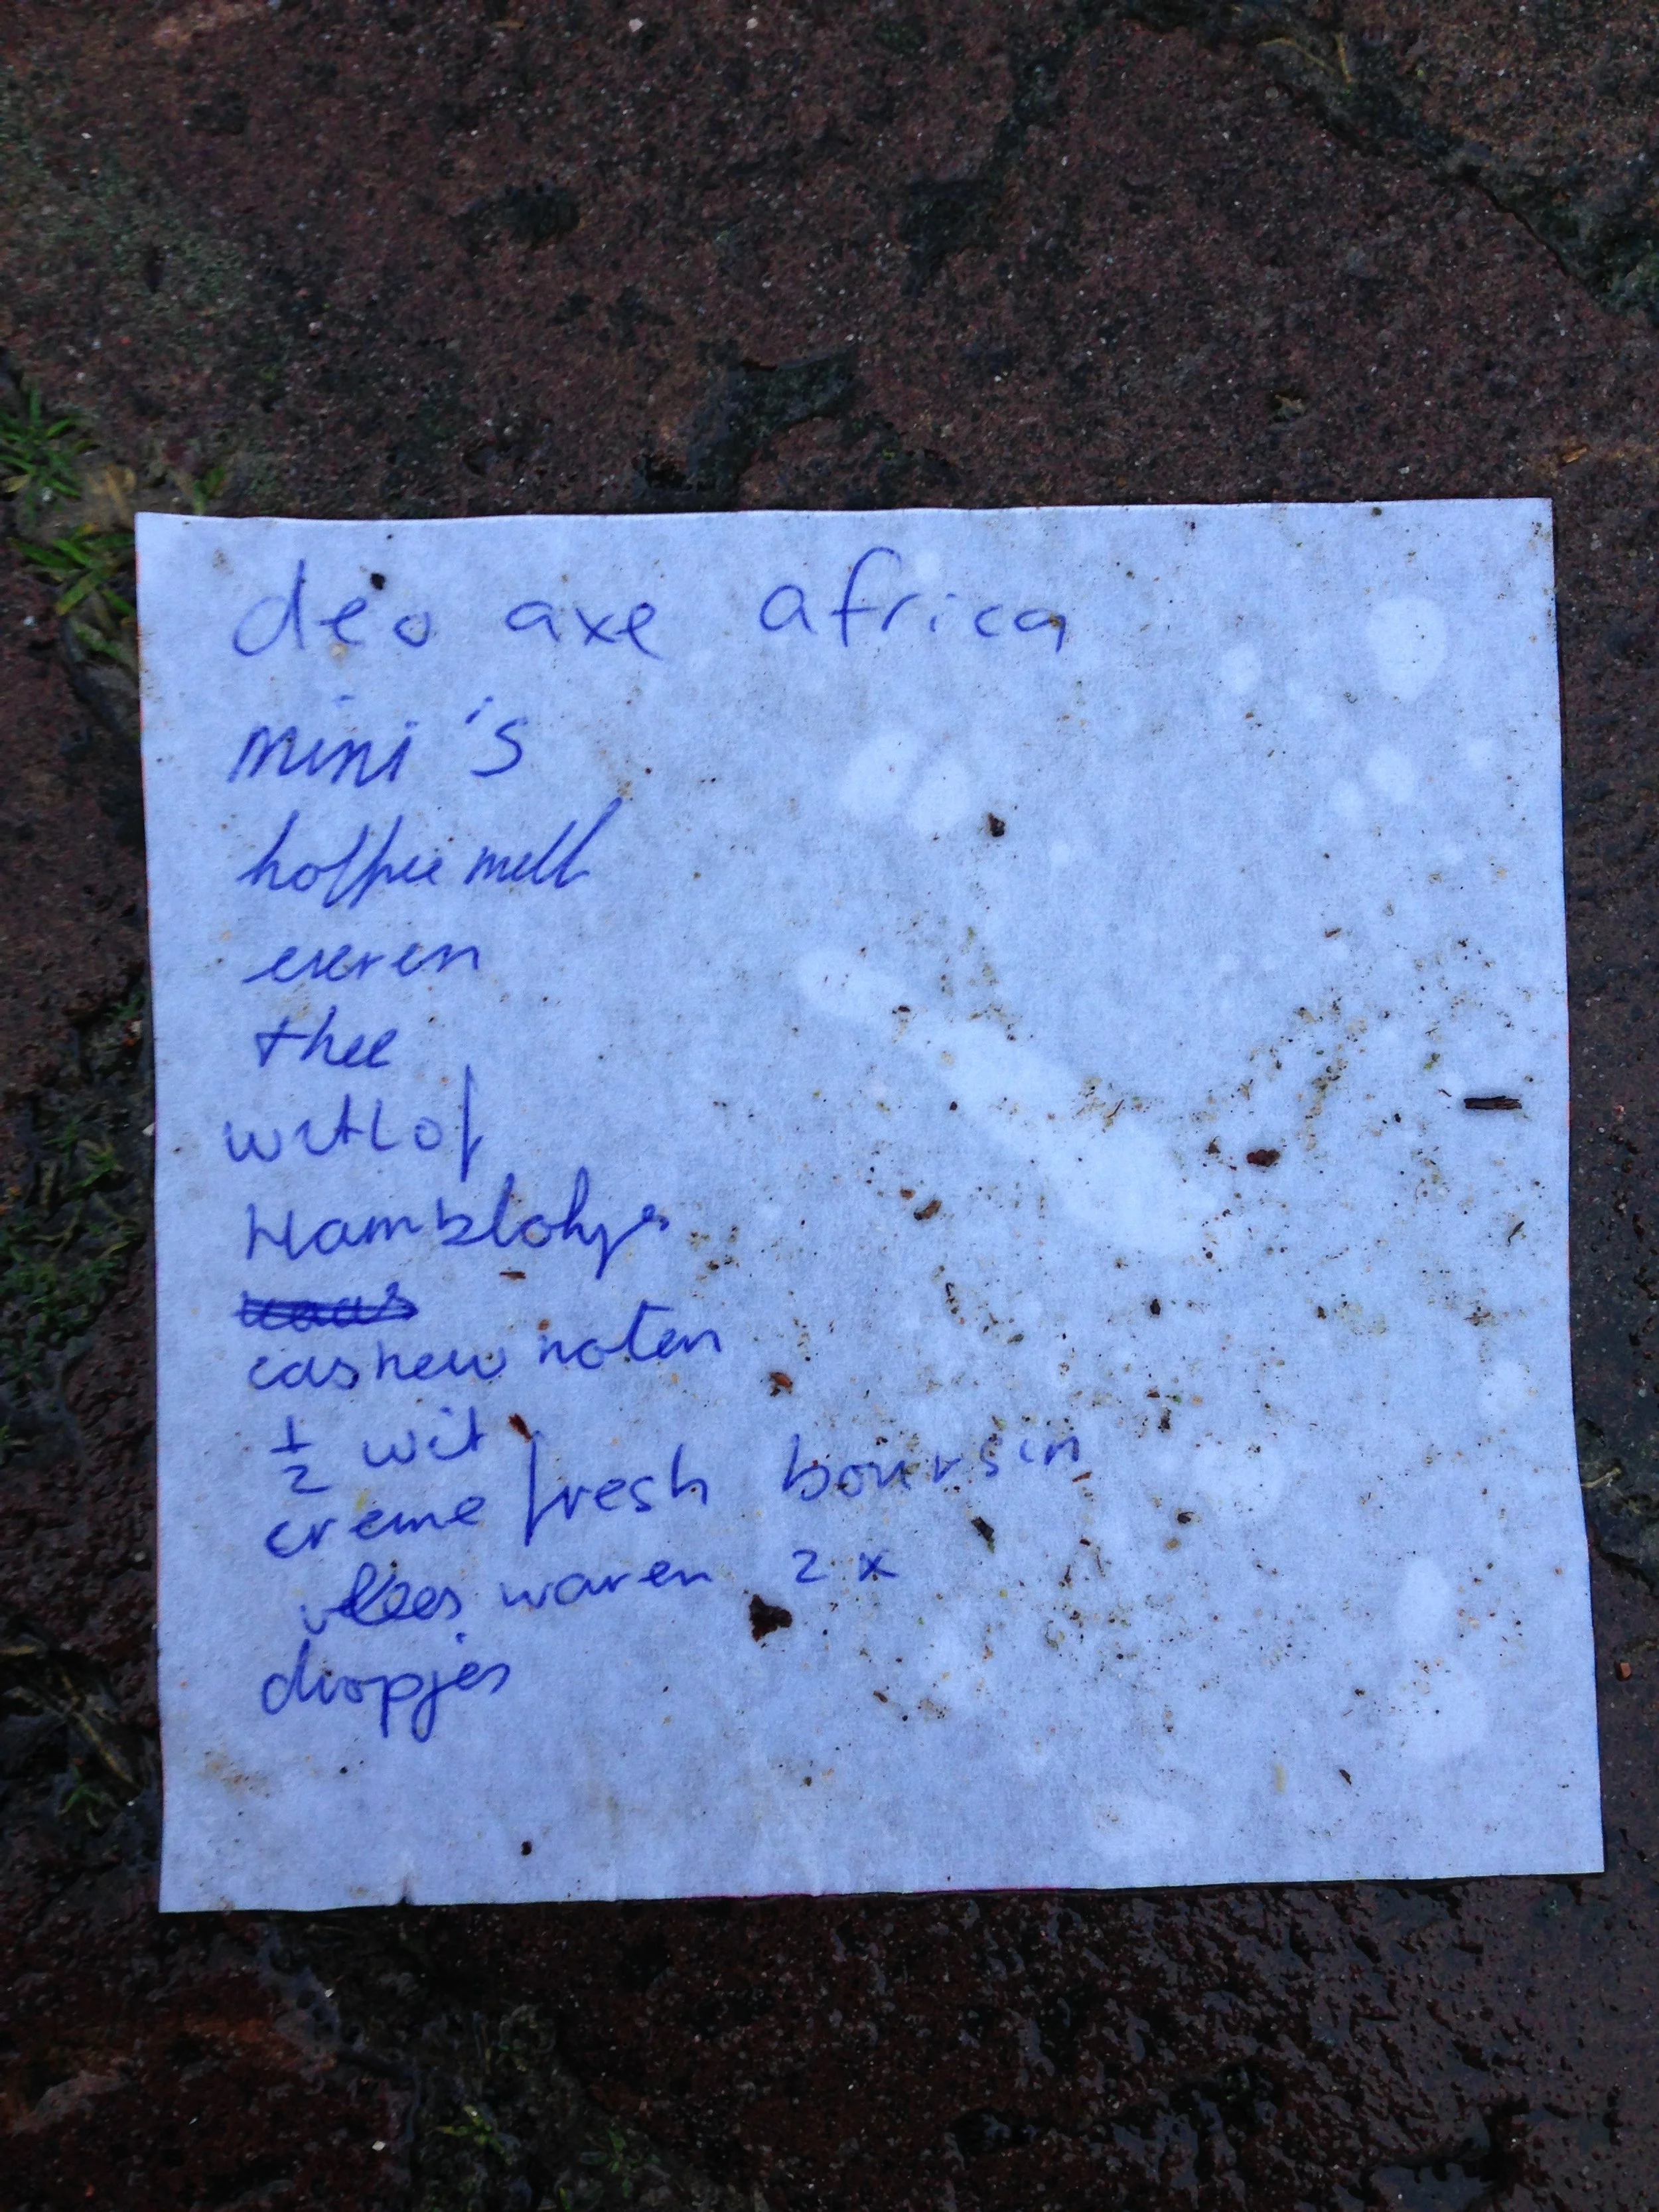 deo axe africa
mini's
koffie melk
eieren
thee
witlof
Hamblokjes
kaas
cashew noten
1/2 wit
creme fresh boursin
vlees waren 2 x
dropjes